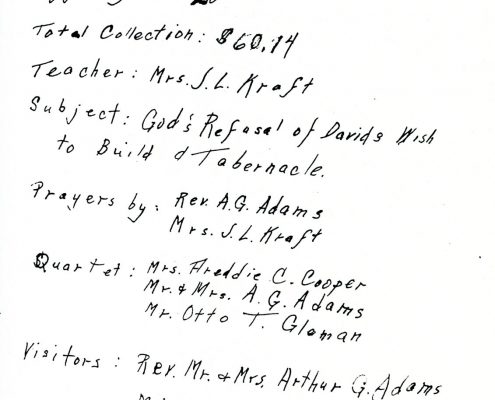 Total Collection: $60.14
Teacher: Mrs. J.L. Kraft
Subject: God's Refusal of Davids Wish
to Build a Tabernacle.
Prayers by: Rev. A.G. Adams
Mrs. J.L. Kraft
Quartet: Mrs. Freddie C. Cooper
Mr. & Mrs. A.G. Adams
Mr. Otto T. Gloman
Visitors: Rev. Mr. & Mrs. Arthur G. Adams